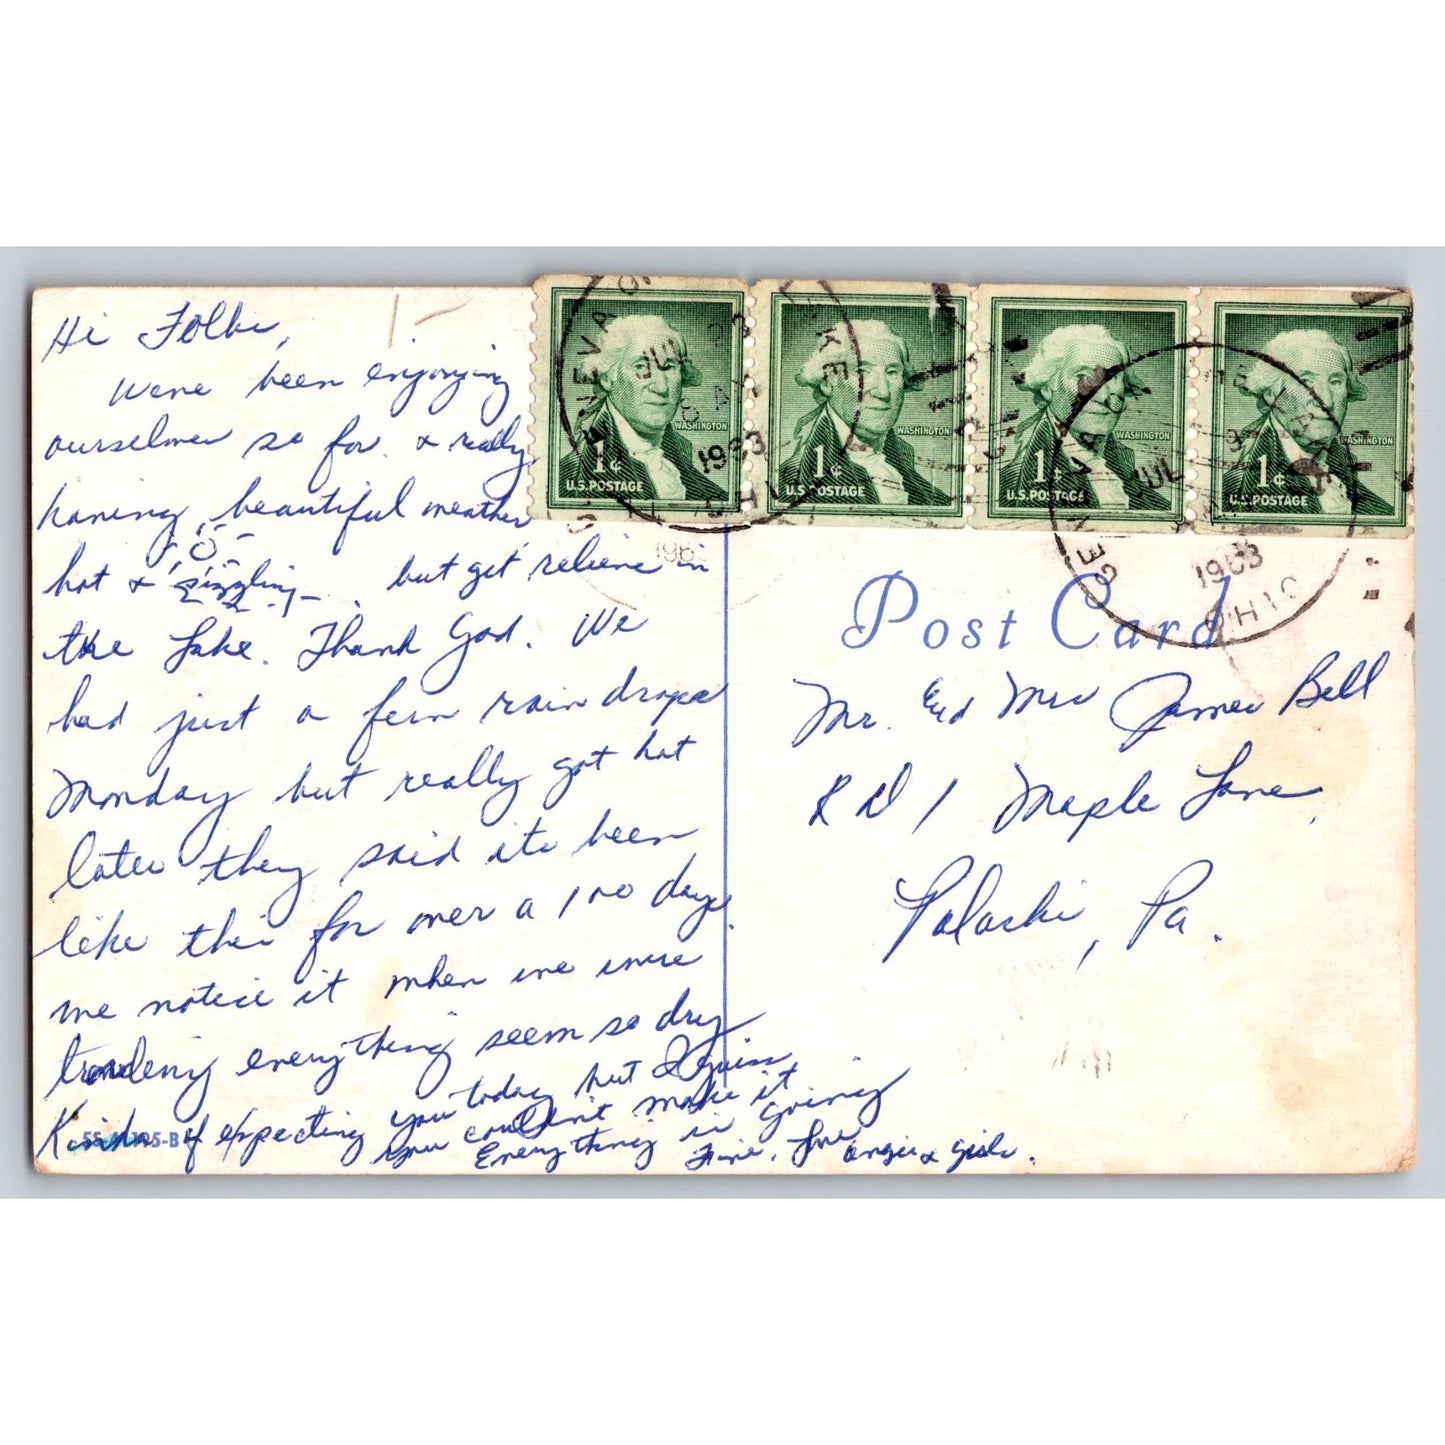 Hi Folks,
Were been enjoying
ourselves so far. & really
having beautiful weather
hot & sizzling. but get relieve in
the Lake. Thank God. We
had just a few rain drops
Monday but really got hot
later they said its been
like this for over a 100 days.
we notice it when we were
everything seem so dry
Kinda of expecting you today but I guess
you couldn't make it
Everything is going
Fine. Love Angie & girls.
1-
55,    5-B
GENEVA ON THE LAKE
JUL
1963
OHIO
WASHINGTON
1¢
U.S. POSTAGE
WASHINGTON
1¢
U.S. POSTAGE
WASHINGTON
1¢
U.S. POSTAGE
WASHINGTON
1¢
U.S. POSTAGE
GENEVA ON THE LAKE
JUL
1963
OHIO
Post Card
Mr. End Mrs James Bell
R D 1 Maple Lane,
Palaski, Pa.